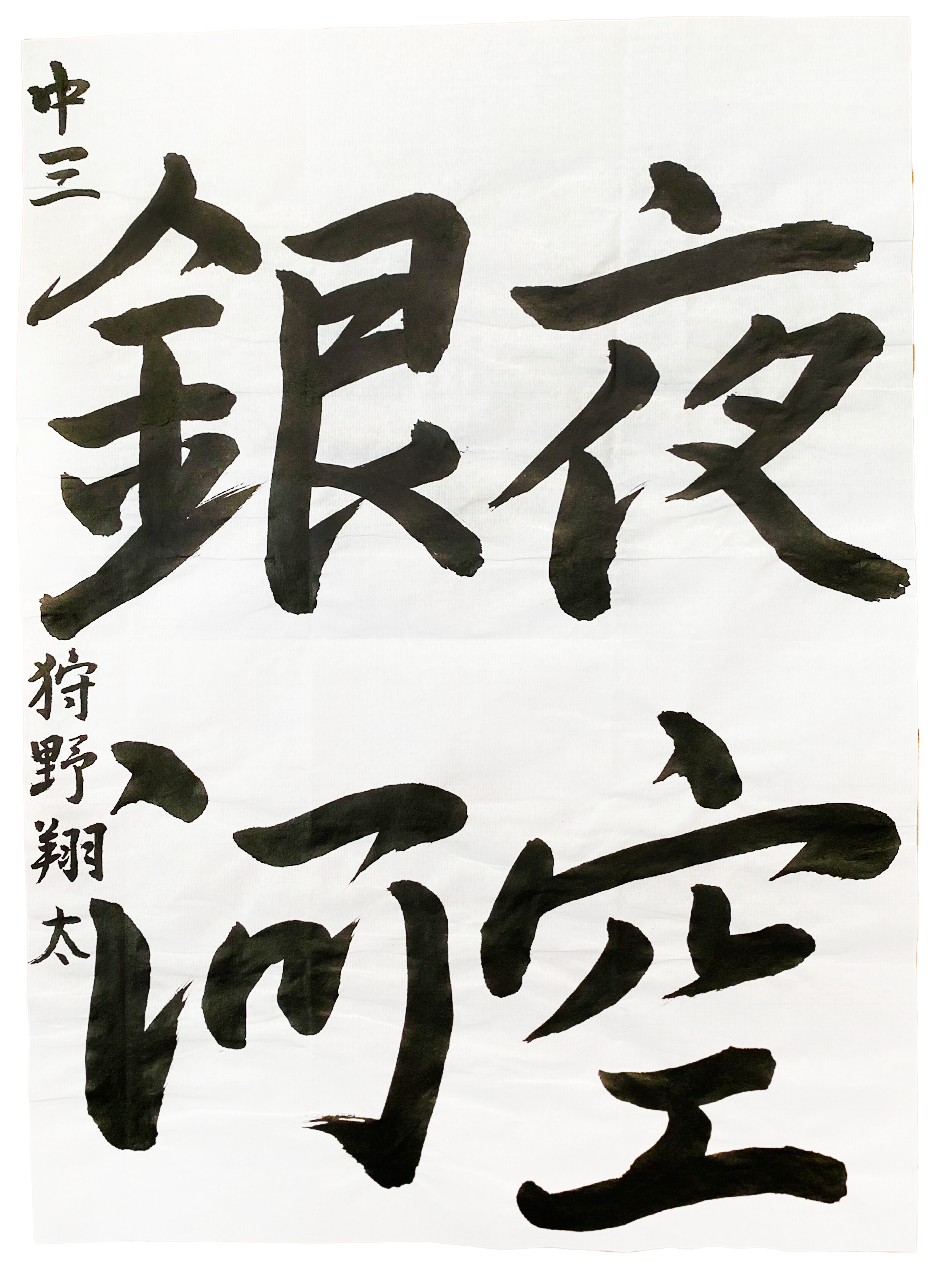 夜空
銀河
中三 狩野翔太